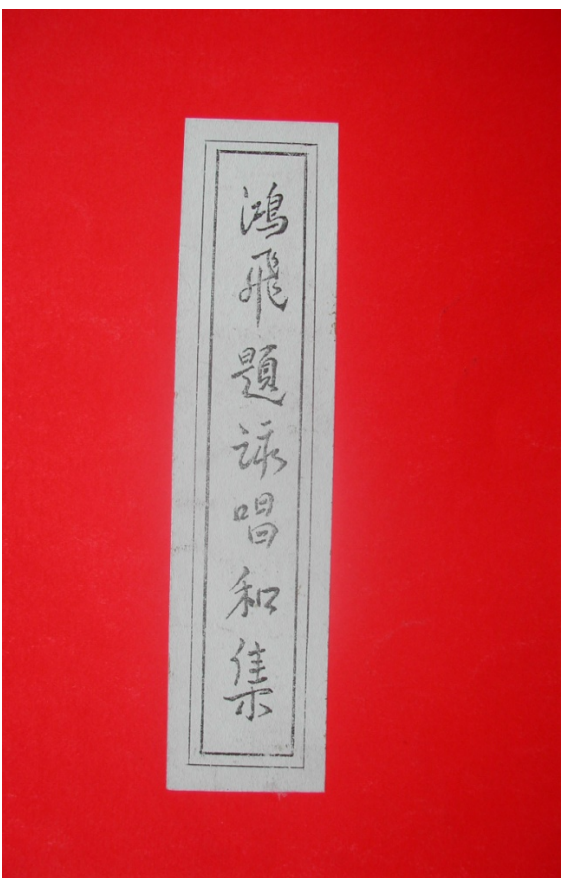 鴻飛題詠唱和集